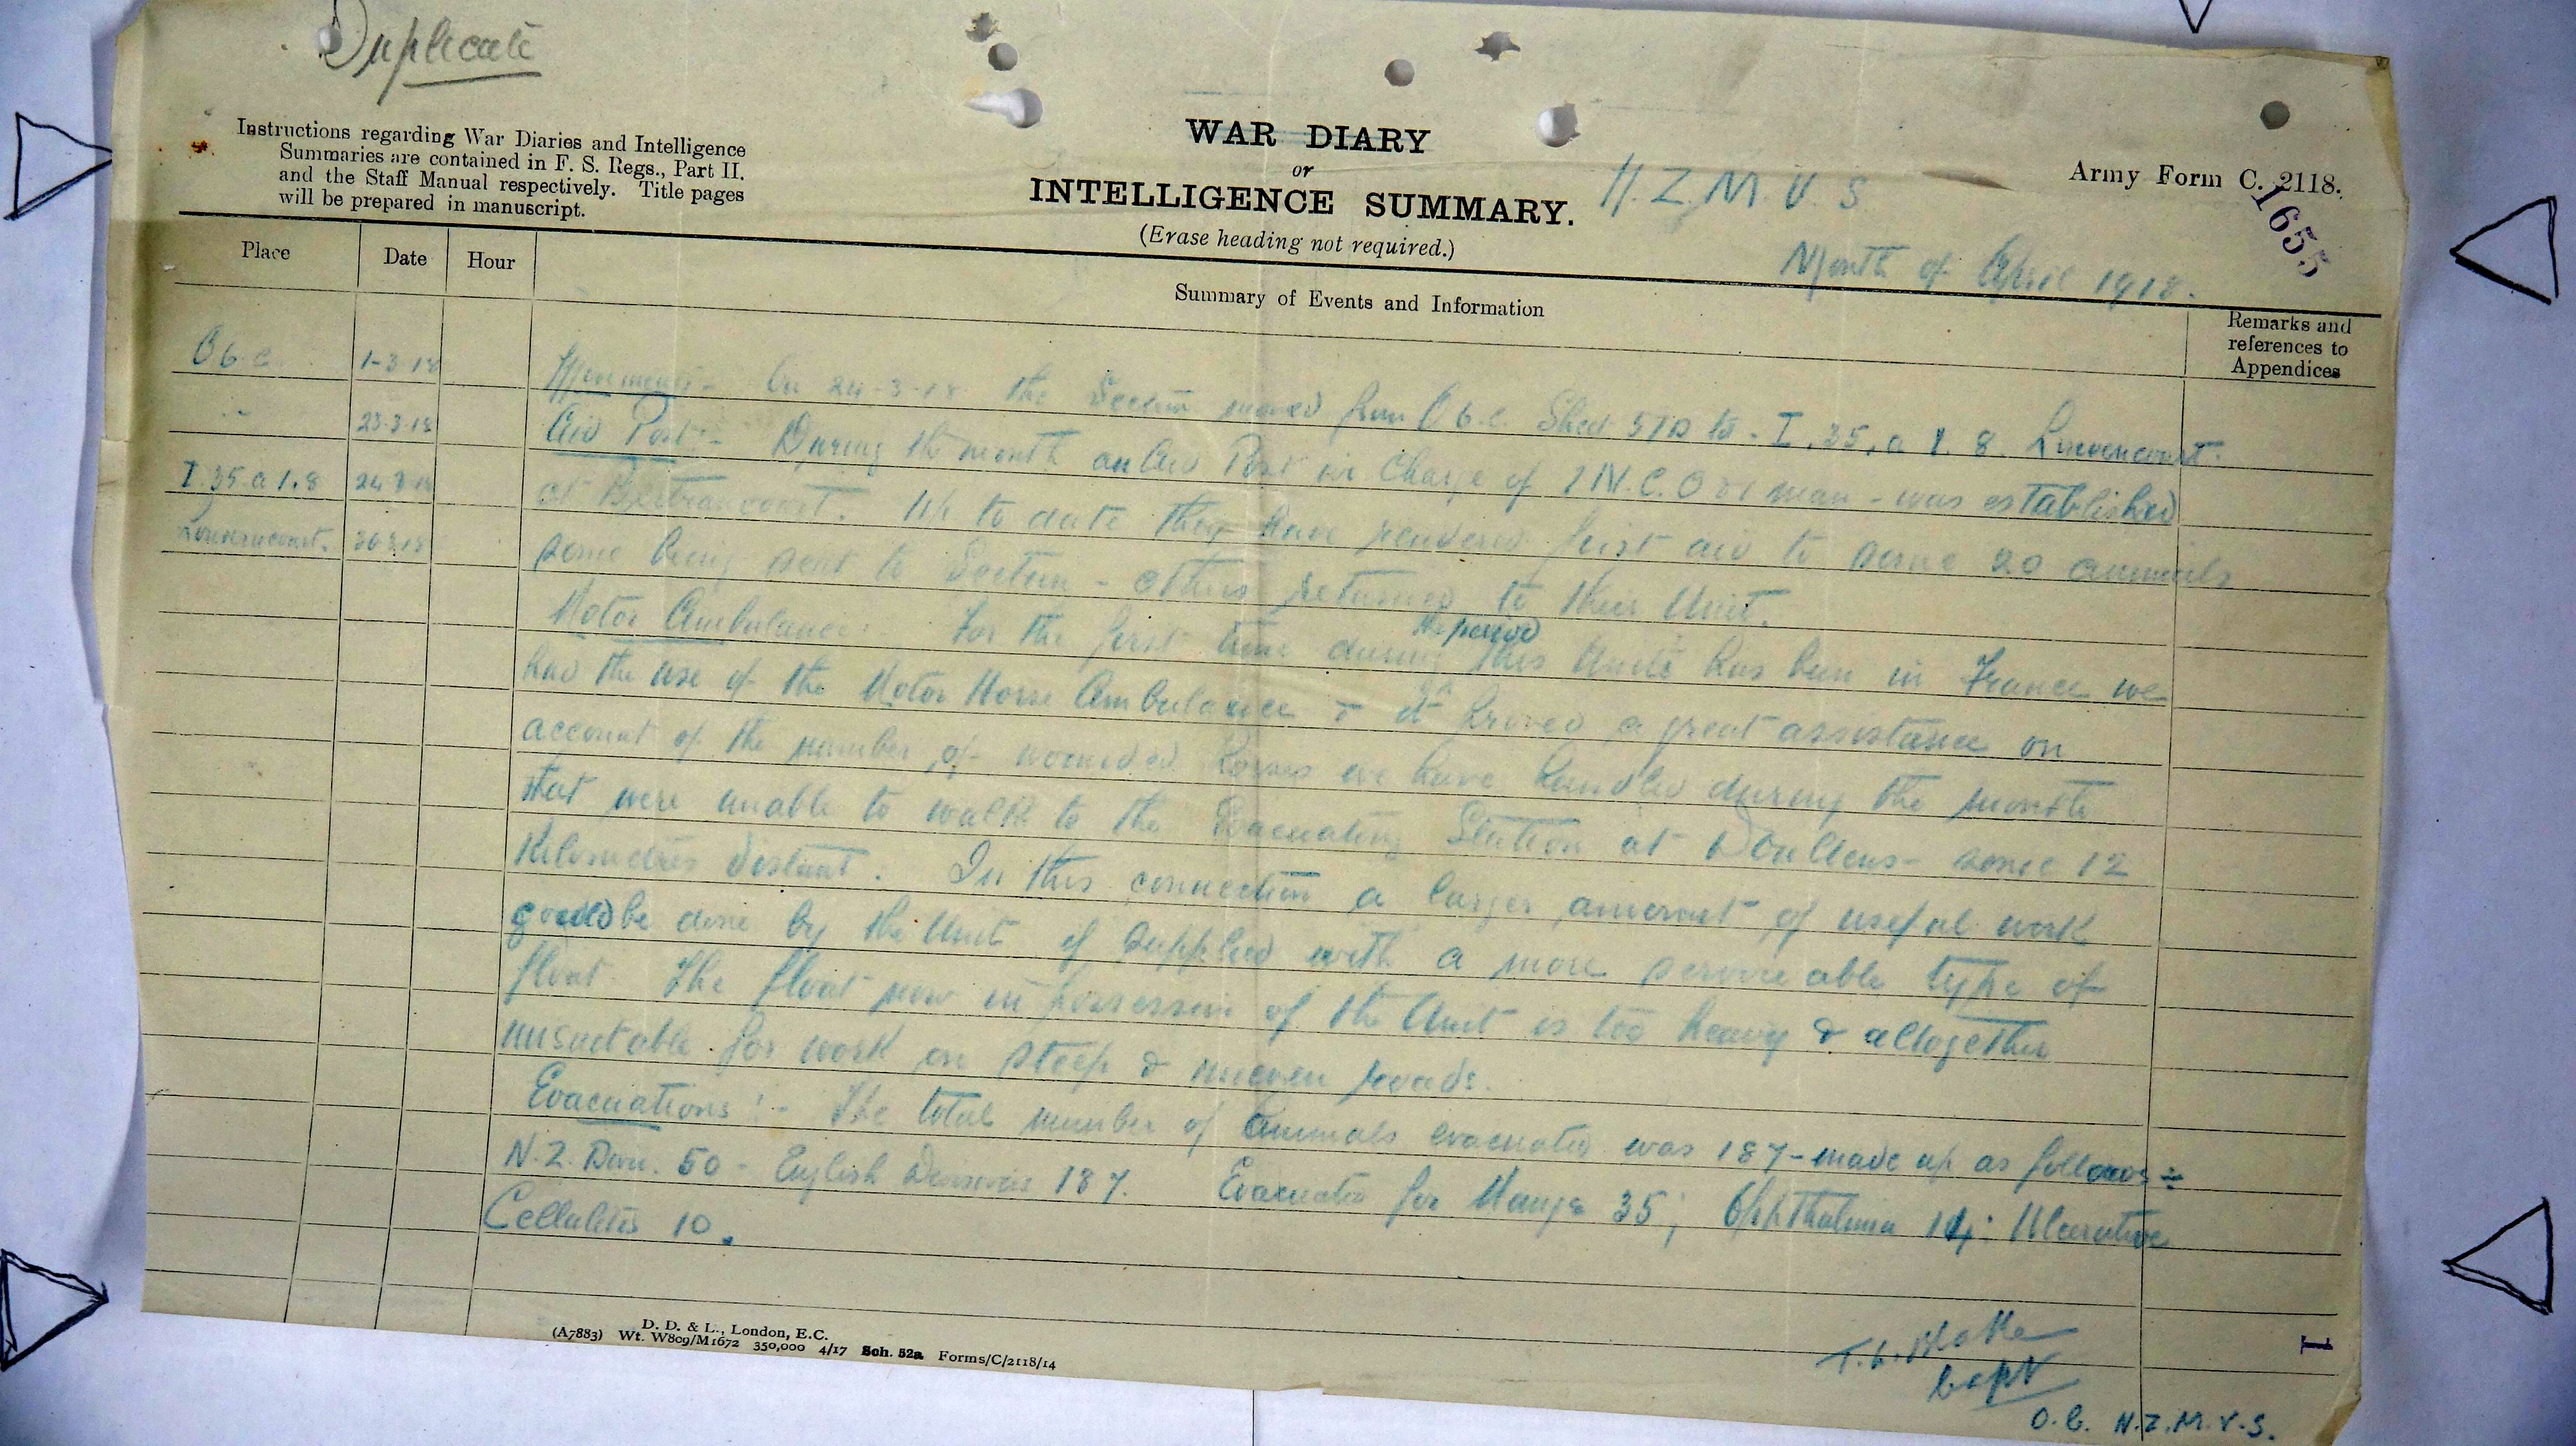 Duplicate
Instructions regarding War Diaries and Intelligence
Summaries are contained in F. S. Regs., Part II.
and the Staff Manual respectively. Title pages
will be prepared in manuscript.
WAR DIARY
or
INTELLIGENCE SUMMARY.
(Erase heading not required.)
N.Z.M.V.S
Month of April 1918.
Army Form C. 2118.
1655
Place
Date
Hour
Summary of Events and Information
Remarks and
references to
Appendices
O b c 1-3-18 Movements - On 24-3-18 the Section moved from O b c. Sheet 57D to - I.35.a 1.8 Louvencourt.
" 23-3-18 Aid Post:- During the month an Aid Post in Charge of 1 N.C.O & 1 man - was established
I.35.a 1.8 24 3 18 at Bertrancourt. Up to date they have rendered first aid to some 20 animals
Louvencourt. 30 3 18 some being sent to Section - others returned to their Unit.
Motor Ambulance: For the first time during the period this Unit has been in France we
had the use of the Motor Horse Ambulance & it proved a great assistance on
account of the number of wounded horses we have handled during the month
that were unable to walk to the Evacuating Station at Doullens - some 12
Kilometres distant. In this connection a larger amount of useful work
could be done by the Unit if supplied with a more serviceable type of
float. The float now in possession of the Unit is too heavy & altogether
unsuitable for work on steep & uneven roads.
Evacuations :- The total number of animals evacuated was 187 - made up as follows :-
N.Z. Divn. 50 - English Divisions 187. Evacuated for Mange 35; Ophthalmia 14: Ulcerative
Cellulitis 10.
D. D. & L., London, E.C.
(A7883) Wt. W809/M1672 350,000 4/17 Sch. 52a Forms/C/2118/14
Capt
O.C. N.Z.M.V.S.
1